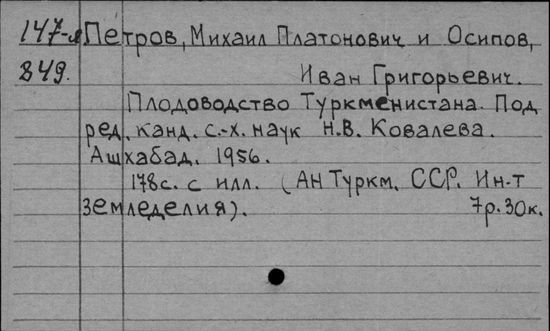 147-л Петров, Михаил Платонович и Осипов,
849. Иван Григорьевич.
Плодоводство Туркменистана. Под
ред. канд. с.-х. наук Н.В. Ковалева.
Ашхабад. 1956.
178с. с илл. (АН Туркм. ССР. Ин-т
Земледелия). 7р.30к.